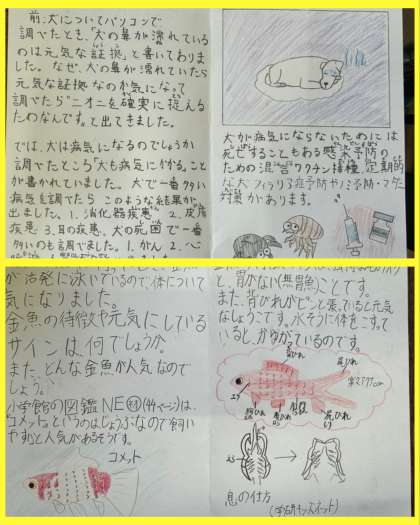 前、犬についてパソコンで
調べたとき、「犬の鼻が濡れている
のは元気な証拠」と書いてありま
した。なぜ、犬の鼻が濡れていたら
元気な証拠なのか気になって
調べたら"ニオイを確実に捉える
ためなんです。"と出てきました。
では、犬は病気になるのでしょうか
調べたところ「犬も病気にかかる。」こと
が書かれていました。犬で一番多い
病気を調べたら このような結果が
出ました。1.消化器疾患 2.皮膚
疾患 3.耳の疾患、犬の死因で一番
多いのも調べました。1.がん 2.心
犬が病気にならないためには
死亡することもある感染予防の
ための混合ワクチン接種 定期的
な犬フィラリア症予防やノミ予防・マダニ
対策があります。
が活発に泳いでいるので体について
気になりました。
金魚の特徴や元気にしている
サインは、何でしょうか。
また、どんな金魚が人気なので
しょう。
小学館の図鑑NEO
コメット。というのはじょうぶなので飼い
やすいと人気があるそうです。
コメット
と、胃がない(無胃魚)ことです。
また、背びれがピンと張っていると元気
なしょうこです。水そうに体をこすって
いると、かゆがっているのです。
背びれ
尾びれ
エラ
胸びれ
腹びれ
尻びれ
えら
息の仕方
(学研キッズネット)